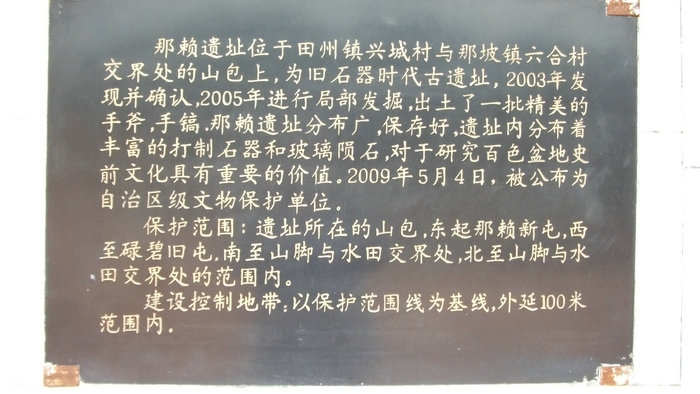 那赖遗址位于田州镇兴城村与那坡镇六合村
交界处的山包上，为旧石器时代古遗址，2003年发
现并确认，2005年进行局部发掘，出土了一批精美的
手斧，手镐.那赖遗址分布广，保存好，遗址内分布着
丰富的打制石器和玻璃陨石，对于研究百色盆地史
前文化具有重要的价值。2009年5月4日，被公布为
自治区级文物保护单位。
保护范围：遗址所在的山包，东起那赖新屯，西
至碌碧旧屯，南至山脚与水田交界处，北至山脚与水
田交界处的范围内。
建设控制地带：以保护范围线为基线，外延100米
范围内。